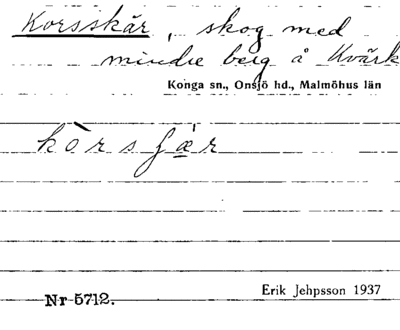 Korsskär, skog med
mindre berg å Kvärk
Konga sn., Onsjö hd., Malmöhus län
kòrsʃæ̱r
Nr 5712.
Erik Jehpsson 1937